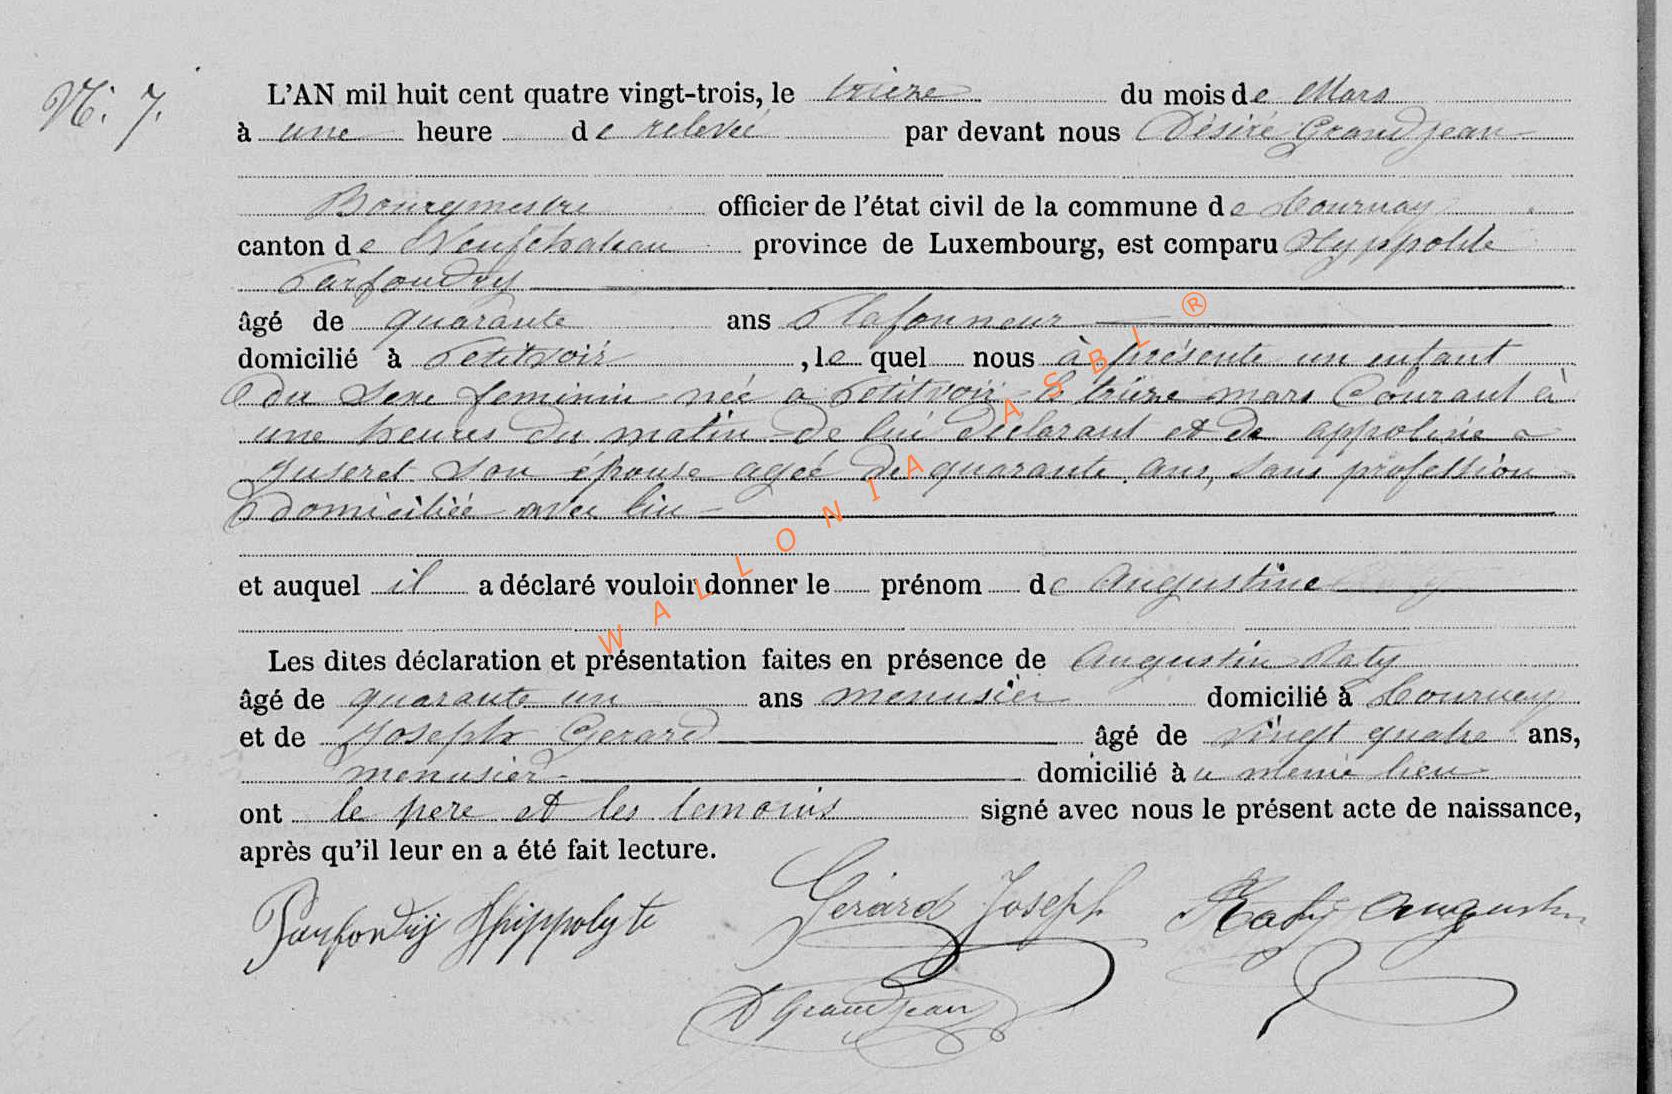 N: 7.
L'AN mil huit cent quatre vingt-trois, le trieze du mois de Mars
à une heure de relevée par devant nous Désiré Grandjean
Bourgmestre officier de l'état civil de la commune de Tournay
canton de Neufchateau province de Luxembourg, est comparu Hyppolite
Parfondry
âgé de quarante ans Plafonneur
domicilié à Petitvoir, le quel nous à présenté un enfant
du sexe feminin née a Petitvoir le trieze mars Courant à
une heures du matin de lui déclarant et de appoline
Guseret son épouse agée de quarante ans, sans profession
domiciliée avec lui
et auquel il a déclaré vouloir donner le prénom de Augustine
Les dites déclaration et présentation faites en présence de Augustin Raty
âgé de quarante un ans menusier domicilié à Tournay
et de Joseph Gerard âgé de vingt quatre ans,
menusier domicilié àu meme lieu
ont le pere et les temoins signé avec nous le présent acte de naissance,
après qu'il leur en a été fait lecture.
Parfondry Hippolyte Gérard Joseph Raty Augustin
D Grandjean
WALLONIA ASBL ®